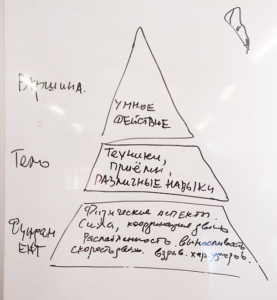 Вершина.
УМНОЕ
ДЕЙСТВИЕ
Тело
Техники,
приёмы,
РАЗЛИЧНЫЕ НАВЫКИ
Фундам
ЕНТ
Физические аспекты.
Сила, координация движ
Расслабленность. выносливость
скорость движ.